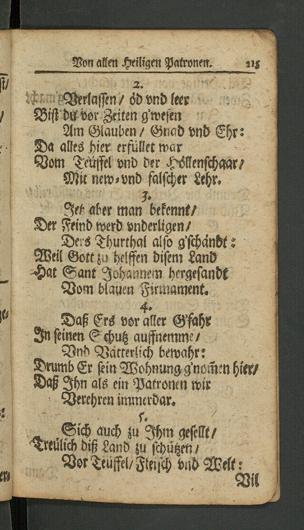 Von allen Heiligen Patronen. 215
2.
Verlassen/ öd vnd leer
Bist du vor Zeiten g'wesen
Am Glauben/ Gnad vnd Ehr:
Da alles hier erfüllet war
Vom Teüffel vnd der Höllenschaar/
Mit new- vnd falscher Lehr.
3.
Jetz aber man bekennt/
Der Feind werd vnderligen/
Ders Thurthal also g'schändt:
Weil Gott zu helffen disem Land
Hat Sant Johannem hergesandt
Vom blauen Firmament.
4.
Daß Ers vor aller G'fahr
In seinen Schutz auffnemme/
Vnd Vätterlich bewahr:
Drumb Er sein Wohnung g'nom̃en hier/
Daß Ihn als ein Patronen wir
Verehren immerdar.
5.
Sich auch zu Ihm gesellt/
Treülich diß Land zu schützen/
Vor Teüffel/ Fleisch vnd Welt:
Vil